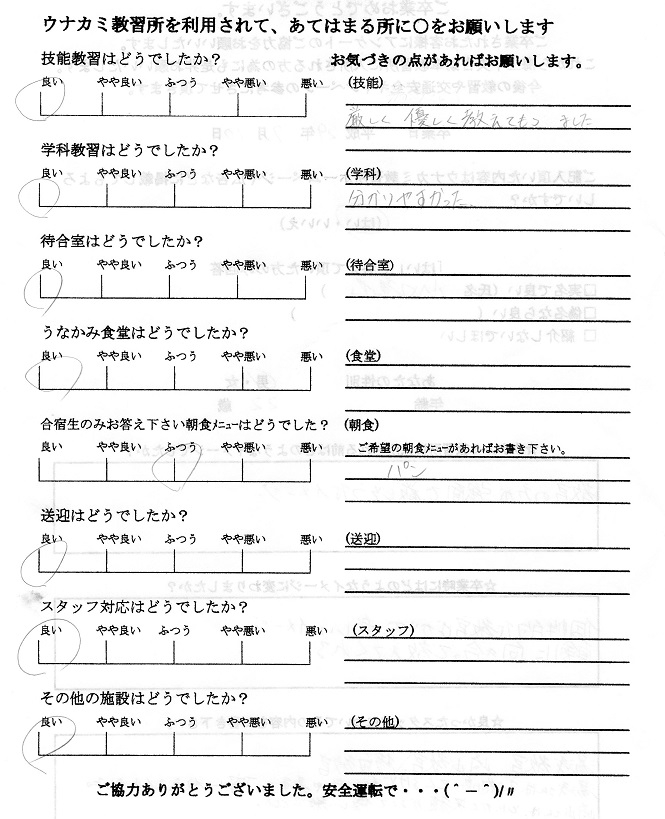 ウナカミ教習所を利用されて、あてはまる所に○をお願いします
技能教習はどうでしたか？
お気づきの点があればお願いします。
良い やや良い ふつう やや悪い 悪い
(技能)
厳しく 優しく教えてもらいました
学科教習はどうでしたか？
良い やや良い ふつう やや悪い 悪い
(学科)
分かりやすかった。
待合室はどうでしたか？
良い やや良い ふつう やや悪い 悪い
(待合室)
うなかみ食堂はどうでしたか？
良い やや良い ふつう やや悪い 悪い
(食堂)
合宿生のみお答え下さい朝食ﾒﾆｭｰはどうでした？
(朝食)
良い やや良い ふつう やや悪い 悪い
ご希望の朝食ﾒﾆｭｰがあればお書き下さい。
パン
送迎はどうでしたか？
良い やや良い ふつう やや悪い 悪い
(送迎)
スタッフ対応はどうでしたか？
良い やや良い ふつう やや悪い 悪い
(スタッフ)
その他の施設はどうでしたか？
良い やや良い ふつう やや悪い 悪い
(その他)
ご協力ありがとうございました。安全運転で・・・(＾－＾)/〃